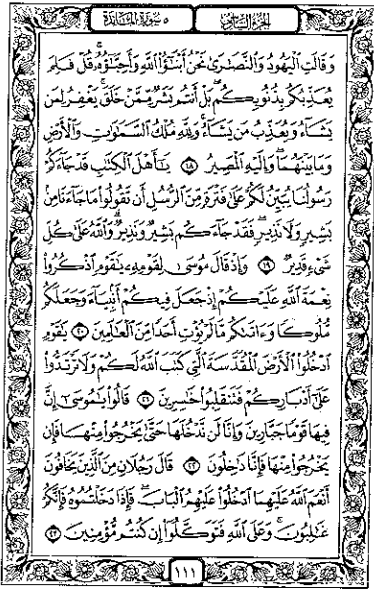 الجزء السادس
٥ سورة المائدة
وَقَالَتِ الْيَهُودُ وَالنَّصَٰرَىٰ نَحْنُ أَبْنَٰٓؤُا۟ اللَّهِ وَأَحِبَّٰٓؤُهُۥ ۚ قُلْ فَلِمَ
يُعَذِّبُكُم بِذُنُوبِكُم ۖ بَلْ أَنتُم بَشَرٌ مِّمَّنْ خَلَقَ ۚ يَغْفِرُ لِمَن
يَشَآءُ وَيُعَذِّبُ مَن يَشَآءُ ۚ وَلِلَّهِ مُلْكُ السَّمَٰوَٰتِ وَالْأَرْضِ
وَمَا بَيْنَهُمَا ۖ وَإِلَيْهِ الْمَصِيرُ ١٨ يَٰٓأَهْلَ الْكِتَٰبِ قَدْ جَآءَكُمْ
رَسُولُنَا يُبَيِّنُ لَكُمْ عَلَىٰ فَتْرَةٍ مِّنَ الرُّسُلِ أَن تَقُولُوا۟ مَا جَآءَنَا مِنۢ
بَشِيرٍ وَلَا نَذِيرٍ ۖ فَقَدْ جَآءَكُم بَشِيرٌ وَنَذِيرٌ ۗ وَاللَّهُ عَلَىٰ كُلِّ
شَىْءٍ قَدِيرٌ ١٩ وَإِذْ قَالَ مُوسَىٰ لِقَوْمِهِۦ يَٰقَوْمِ اذْكُرُوا۟
نِعْمَةَ اللَّهِ عَلَيْكُمْ إِذْ جَعَلَ فِيكُمْ أَنۢبِيَآءَ وَجَعَلَكُم
مُّلُوكًا وَءَاتَىٰكُم مَّا لَمْ يُؤْتِ أَحَدًا مِّنَ الْعَٰلَمِينَ ٢٠ يَٰقَوْمِ
ادْخُلُوا۟ الْأَرْضَ الْمُقَدَّسَةَ الَّتِى كَتَبَ اللَّهُ لَكُمْ وَلَا تَرْتَدُّوا۟
عَلَىٰٓ أَدْبَارِكُمْ فَتَنقَلِبُوا۟ خَٰسِرِينَ ٢١ قَالُوا۟ يَٰمُوسَىٰٓ إِنَّ
فِيهَا قَوْمًا جَبَّارِينَ وَإِنَّا لَن نَّدْخُلَهَا حَتَّىٰ يَخْرُجُوا۟ مِنْهَا فَإِن
يَخْرُجُوا۟ مِنْهَا فَإِنَّا دَٰخِلُونَ ٢٢ قَالَ رَجُلَانِ مِنَ الَّذِينَ يَخَافُونَ
أَنْعَمَ اللَّهُ عَلَيْهِمَا ادْخُلُوا۟ عَلَيْهِمُ الْبَابَ ۖ فَإِذَا دَخَلْتُمُوهُ فَإِنَّكُمْ
غَٰلِبُونَ ۚ وَعَلَى اللَّهِ فَتَوَكَّلُوٓا۟ إِن كُنتُم مُّؤْمِنِينَ ٢٣
١١١